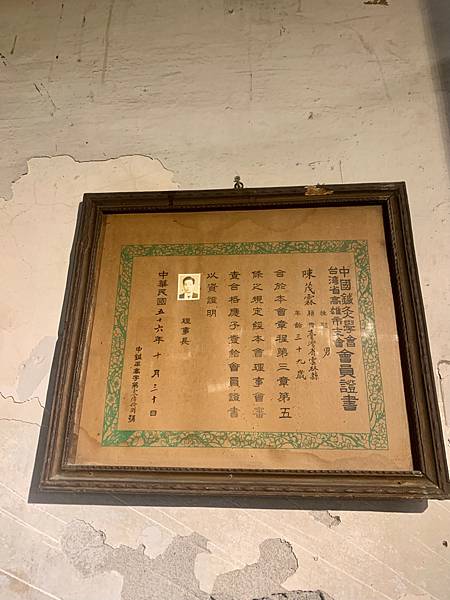 中國鍼灸學會
台灣省高雄市支會
會員證書
陳茂霖
性別 男
籍貫 臺灣省雲林縣
年齡 三十九歲
合於本會章程第三章第五
條之規定經本會理事會審
查合格應予壹給會員證書
以資證明
理事長
中華民國五十六年十月三十日